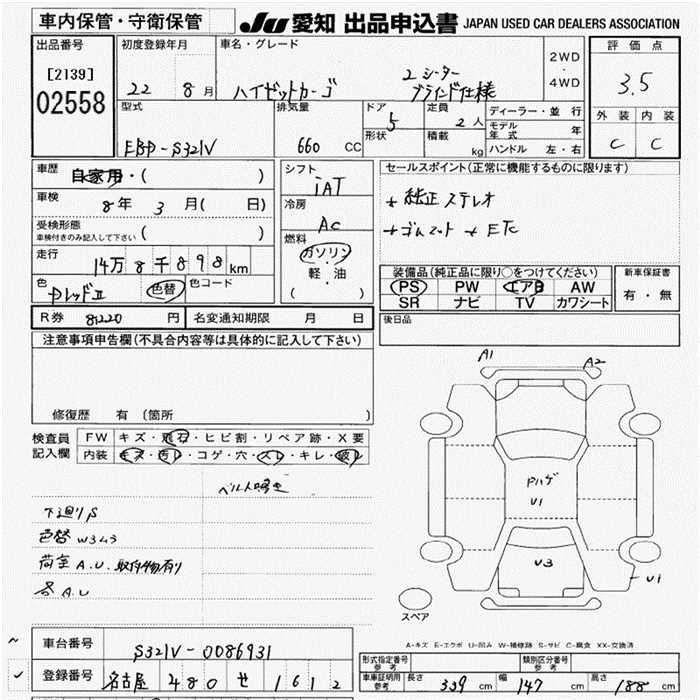 車内保管・守衛保管
JU 愛知 出品申込書 JAPAN USED CAR DEALERS ASSOCIATION
出品番号
[2139]
02558
初度登録年月
22 8 月
車名・グレード
ハイゼットカーゴ
2シーター
ブラインド仕様
2WD
・
4WD
評価点
3.5
外装 内装
C C
型式
EBD-S321V
排気量
660 CC
ドア
5
形状
定員
2 人
積載
kg
ディーラー・並行
モデル年式 年
ハンドル 左・右
車歴
自家用・( )
車検
8 年 3 月( 日)
受検形態
車検付きのみ記入して下さい ( )
走行
14万8千898km
色
色替
色コード
シフト
IAT
冷房
AC
燃料
ガソリン
・
軽・油
( )
セールスポイント(正常に機能するものに限ります)
+ 純正ステレオ
+ ゴムマット + ETC
装備品(純正品に限り○をつけてください)
PS PW エアB AW
SR ナビ TV カワシート
新車保証書
有・無
後日品
R券 81220 円
名変通知期限 月 日
注意事項申告欄(不具合内容等は具体的に記入して下さい)
修復歴 有 (箇所 )
検査員記入欄
FW キズ・飛石・ヒビ割・リペア跡・X要
内装 キズ・汚レ・コゲ・穴・スレ・キレ・破レ
ベルト鳴き
下廻りS
色替 W3あり
荷室 A.U. 取付物有り
各 A.U
A1 A2
Pハゲ
U1
U3
U1
スペア
A-キズ E-エクボ U-凹み W-補修跡 S-サビ C-腐食 XX-交換済
車台番号 S321V-0086931
登録番号 名古屋 480 せ 1612
形式指定番号 参考
類別区分番号 参考
車庫証明用参考 長さ 339 cm 幅 147 cm 高さ 188 cm